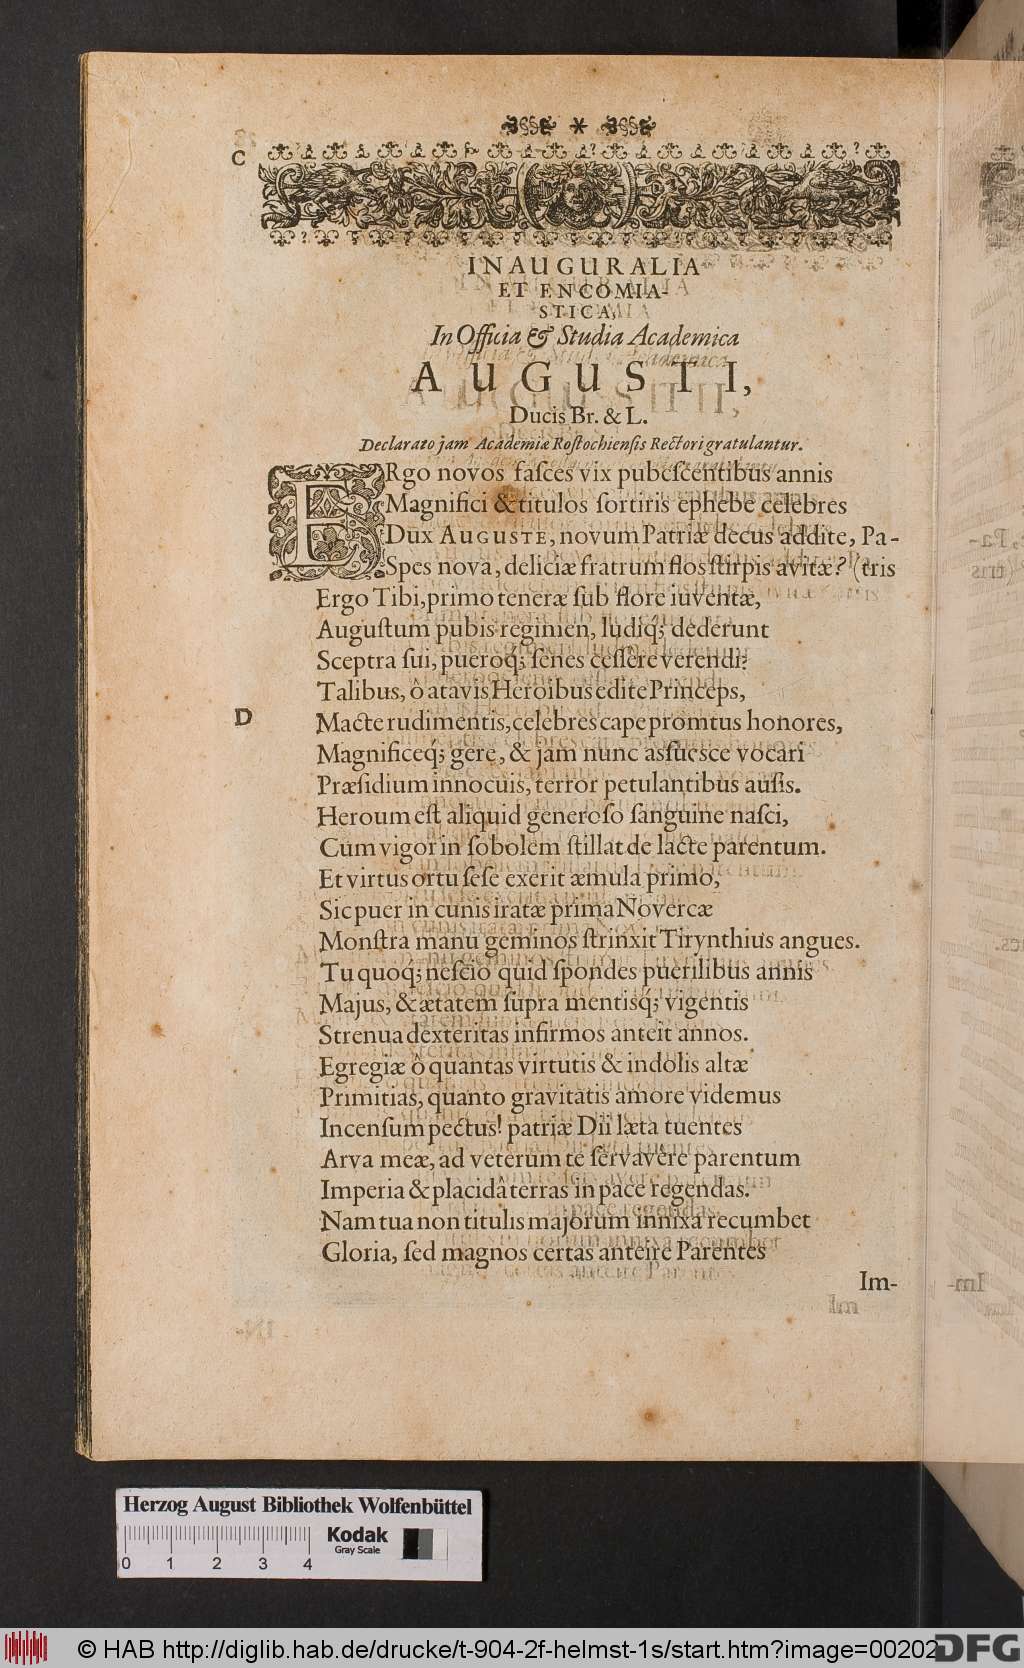 C
INAUGURALIA
ET ENCOMIA-
STICA,
In Officia & Studia Academica
AUGUSTI,
Ducis Br. & L.
Declarato jam Academiæ Roſtochienſis Rectori gratulantur.
ERgo novos faſces vix pubeſcentibus annis
Magnifici & titulos ſortiris ephebe celebres
Dux AUGUSTE, novum Patriæ decus addite, Pa-
Spes nova, deliciæ fratrum flos ſtirpis avitæ? (tris
Ergo Tibi, primo teneræ ſub flore iuventæ,
Auguſtum pubis regimen, ludiq́; dederunt
Sceptra ſui, pueroq́; ſenes ceſſere verendi?
Talibus, ô atavis Heroibus edite Princeps,
D
Macte rudimentis, celebres cape promtus honores,
Magnificeq́; gere, & jam nunc asſuesce vocari
Præſidium innocuis, terror petulantibus auſis.
Heroum eſt aliquid generoſo ſanguine naſci,
Cum vigor in ſobolem ſtillat de lacte parentum.
Et virtus ortu ſeſe exerit æmula primo,
Sic puer in cunis iratæ prima Novercæ
Monſtra manu geminos ſtrinxit Tirynthius angues.
Tu quoq́; neſcio quid ſpondes puerilibus annis
Majus, & ætatem ſupra mentisq́; vigentis
Strenua dexteritas infirmos anteit annos.
Egregiæ ô quantas virtutis & indolis altæ
Primitias, quanto gravitatis amore videmus
Incenſum pectus! patriæ Dii læta tuentes
Arva meæ, ad veterum te ſervavere parentum
Imperia & placidâ terras in pace regendas.
Nam tua non titulis majorum innixa recumbet
Gloria, ſed magnos certas anteire Parentes
Im-
Herzog August Bibliothek Wolfenbüttel
Kodak
Gray Scale
0 1 2 3 4
© HAB http://diglib.hab.de/drucke/t-904-2f-helmst-1s/start.htm?image=00202
DFG